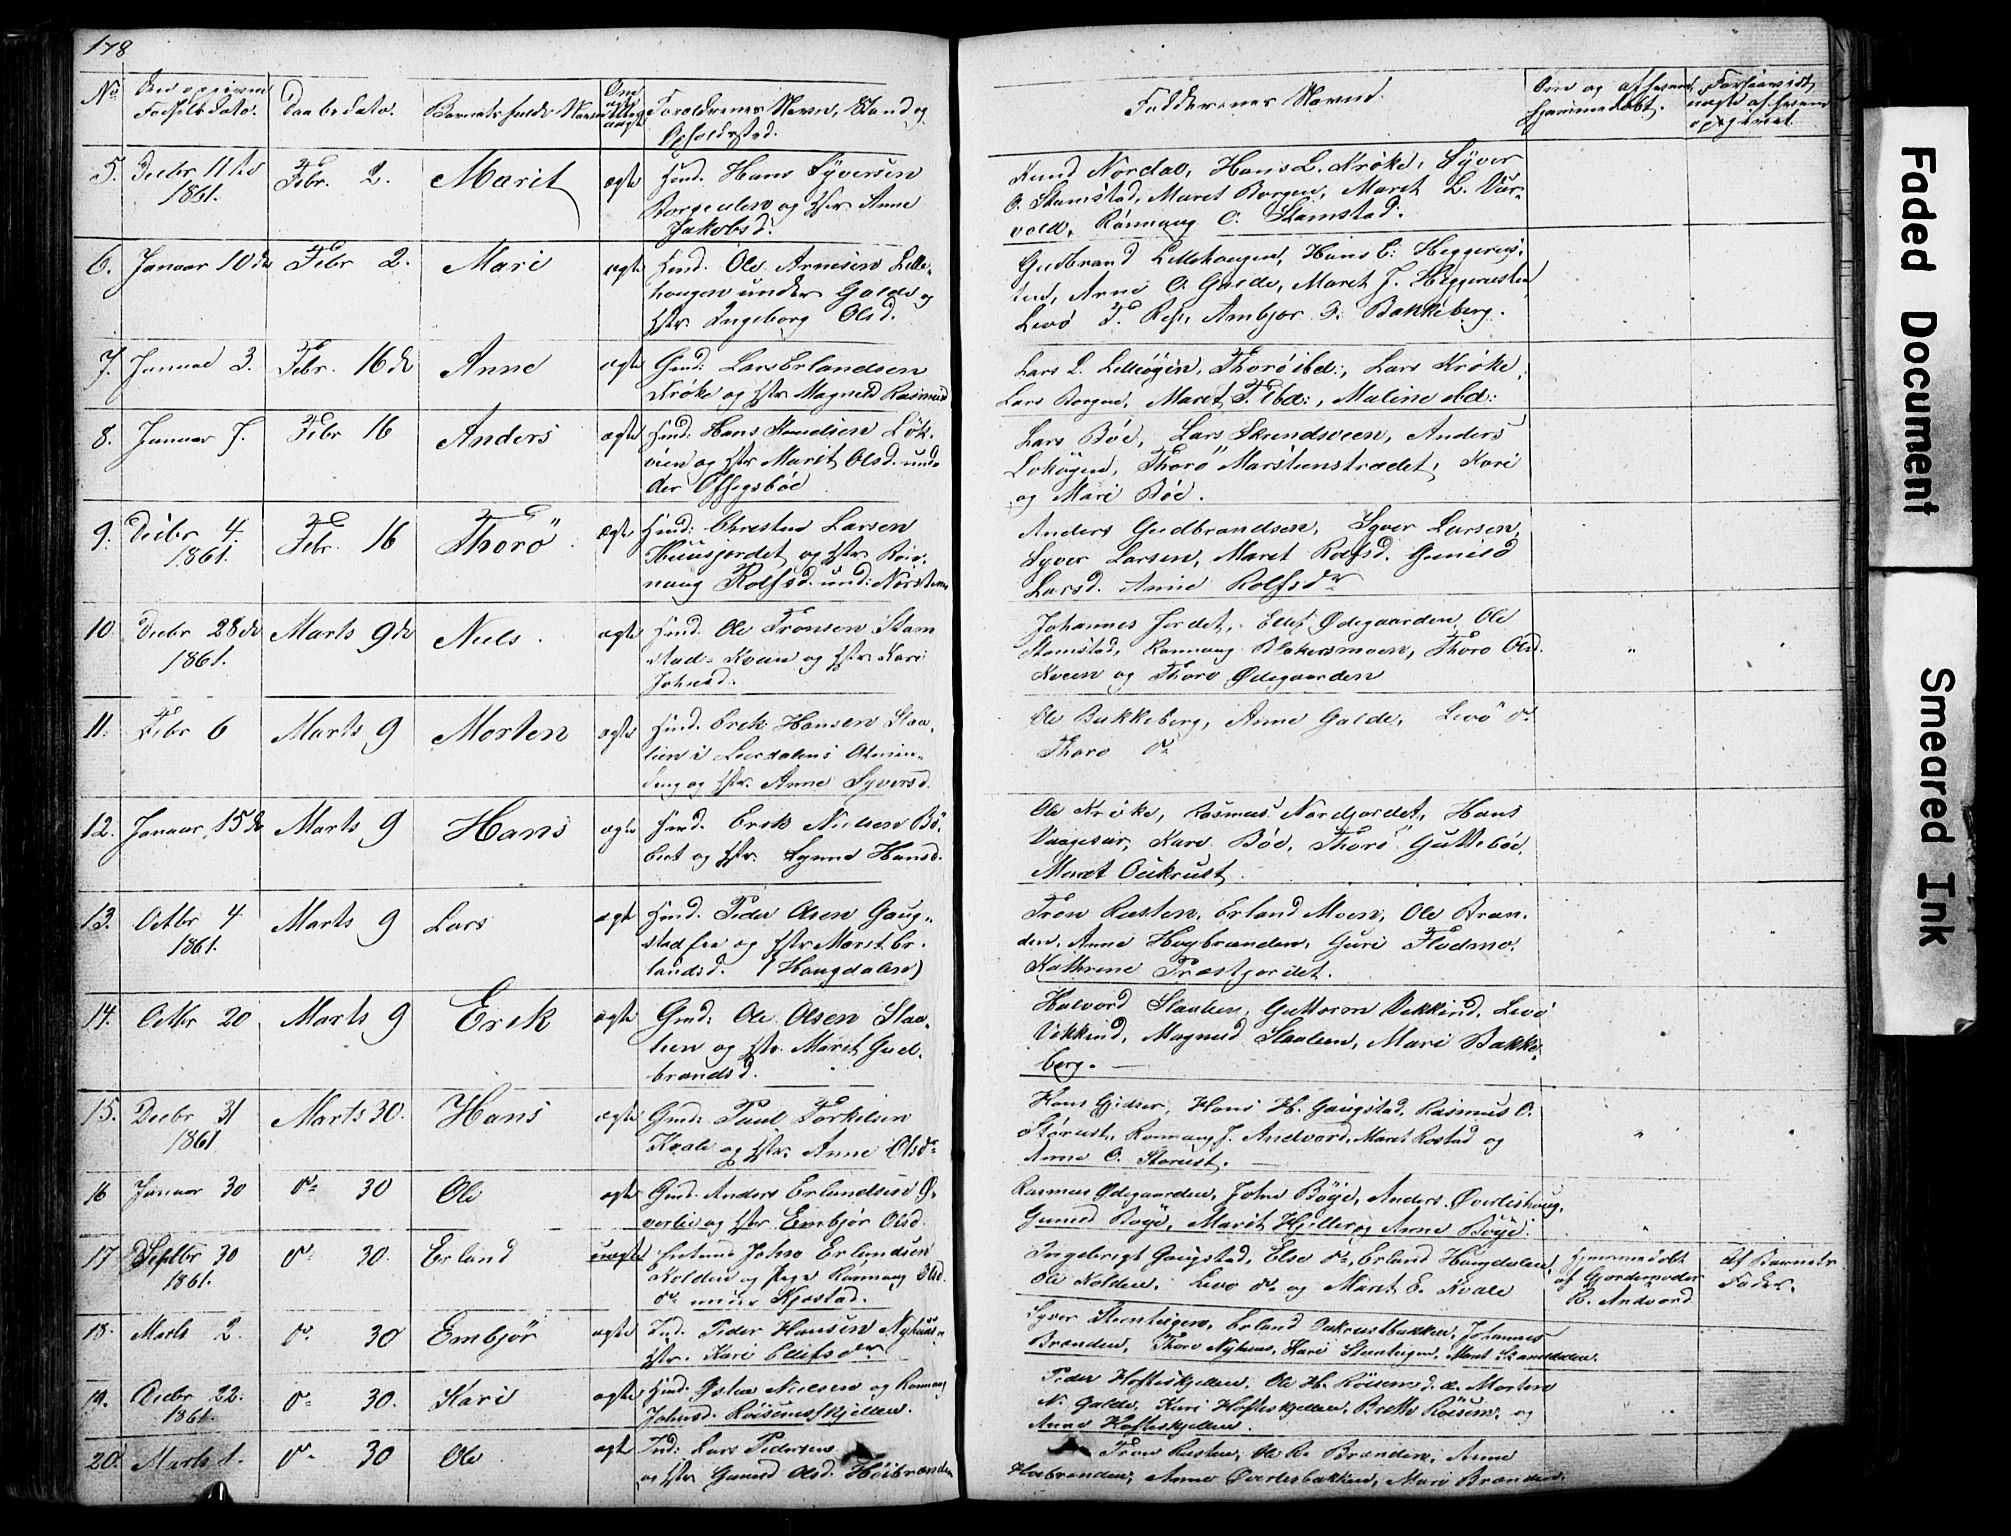 178
No
Den opgivne
Fødselsdato.
Daabsdato.
Barnets fulde Navn
Om
ægte
eller
uægte
Forældrenes Navn, Stand og
Opholdssted.
Faddernes Navne.
Om og af hvem
hjemmedøbt.
Forsaavidt
uægte af hvem
opgivet
5. Decbr 11te Febr. 2. Marit ægte Hmd. Hans Syversen
1861. Borgeulien og Hstr. Anne
Jakobsd.
Knud Nordal, Hans L. Krøke, Syver
O. Stamstad, Maret Borgen, Maret L. Vår-
vold, Rønnaug O. Stamstad.
6. Januar 10de Febr 2. Mari ægte Hmd. Ole Arnesen Lille-
haugen under Galde og
Hstr. Ingeborg Olsd.
Gudbrand Lillehaugen, Hans E. Heggerus-
ten, Arne O. Galde, Maret J. Heggerusten
Levø T. Ref, Ambjor Bakkeberg.
7. Januar 3. Febr. 16de Anne ægte Gmd: Lars Erlandsen
Krøke og Hstr Magnild Rasmusd
Lars L. Lilleøgin, Thorø ibd:, Lars Krøke,
Lars Borgen, Maret T. ibd:, Maline ibd:
8. Januar 7. Febr 16 Anders ægte Hmd: Hans Knudsen Løk-
vien og Hstr Marit Olsd. un-
der Offigsbøe
Lars Bøe, Lars Skrindsveen, Anders
Lokøgen, Thorø Marsteinstrædet, Kari
og Mari Bøe.
9. Decbr 4. Febr. 16 Thorø ægte Hmd: Christen Larsen
1861. Huusjordet og Hstr Røn-
naug Rolfsd. und: Norsteun
Anders Gudbrandsen, Syver Larsen,
Syver Larsen, Maret Rolfsd. Gunild
Larsd. Anne Rolfsdr
10. Decbr 28de Marts 9de Niels. ægte Hmd. Ole Tronsen Stam
1861. stad-Kveen og Hstr. Kari
Johnsd.
Johannes Jordet, Ellef Ødegaarden, Ole
Stamstad, Rønnaug Blakersmoen, Thoro Olsd.
Kveen og Thoro Ødegaarden
11. Febr 6 Marts 9 Morten ægte Hmd. Erik Hansen Slaa-
lien i Leirdalens Almin-
ding og Hstr. Anne Syversd.
Ole Bakkeberg, Anne Galde, Levø do
Thoro do
12. Januar 15de Marts 9 Hans ægte Hmd. Erik Nielsen Bø-
bert og Hstr. Synne Hansd.
Ole Krøke, Rasmus Nordjordet, Hans
Vaagesar, Kari Bøe, Thorø Guttebøe,
Maret Oukrust.
13. Octbr 4 Marts 9 Lars ægte Hmd. Peder Olsen Gaug-
1861. stad fra og Hstr Marit Er-
landsd. (Haugdalen)
Tron Rusten, Erland Moen, Ole Bræn-
den, Anne Høybrænden, Guri Flodmo,
Kathrine Præstjordet.
14. Octbr 20 Marts 9 Erik ægte Gmd: Ole Olsen Slaa-
lien og Hstr. Marit Gud-
brandsd.
Halvord Slaalien, Guttorm Vekkind, Levø
Vekkind, Magnild Slaalien, Mari Bakke-
berg.
15. Decbr 31 Marts 30. Hans ægte Gmd: Paul Torkilsen
1861 Kvale og Hstr. Anne Olsdr
Hans Gjeiser, Hans H. Gaugstad, Rasmus O.
Størust, Rønnaug J. Andvord, Maret Rostad og
Anne O. Storust.
16 Januar 30 do 30 Ole ægte Gmd: Anders Erlandsen Ø-
verlie og Hstr Embjør Olsd.
Rasmus Ødegaarden, John Bøye, Anders Øverlishaug,
Guned Bøye, Marit Hjelle og Anne Bøye.
17 Septbr 30 do 30. Erland uægte John Erlandsen
1861. Kolden og Pige Rønnaug Olsd.
do under Kjøstad.
Ingebrigt Gaugstad, Else do, Erland Haugdalen,
Ole Kolden, Levø do og Maret E. Kvale
Hjemmedøbt
af Gjordemoder
R. Andvord
Af Barnets
Fader.
18. Marts 2. do 30 Embjør ægte Ind. Peder Hansen Nyhuus-
Hstr. Kari Ellefsdr
Syver Steinteigen, Erland Oukrustbakken, Johannes
Brænden, Thoro Nyhuus, Kari Steinteigen, Maret
19. Decbr 22. do 30. Kari ægte Hmd. Østen Nielsen og Rønnaug
1861. Johnsd. Røisumskjellen.
Peder Hofteskjellen, Ole H. Røisum, Morten
N. Galde, Kari Hofteskjellen, Brethe Røisum, og
Anne Hofteskjellen.
20. Marts 1. do 30 Ole ægte Ind: Lars Pedersen
og Hstr Guned Olsd. Høibrænden
Tron Rusten, Ole R. Brænden, Anne
Høebrænden, Anne Øverlisbakken, Mari Brænden.
Faded Document
Smeared Ink